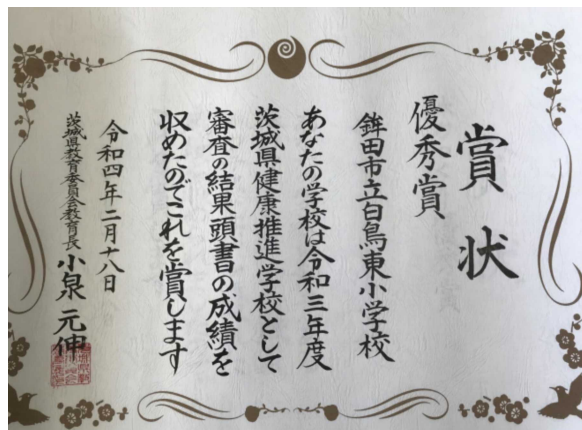 賞状
優秀賞
鉾田市立白鳥東小学校
あなたの学校は令和三年度
茨城県健康推進学校として
審査の結果頭書の成績を
収めたのでこれを賞します
令和四年二月十八日
茨城県教育委員会教育長 小泉元伸